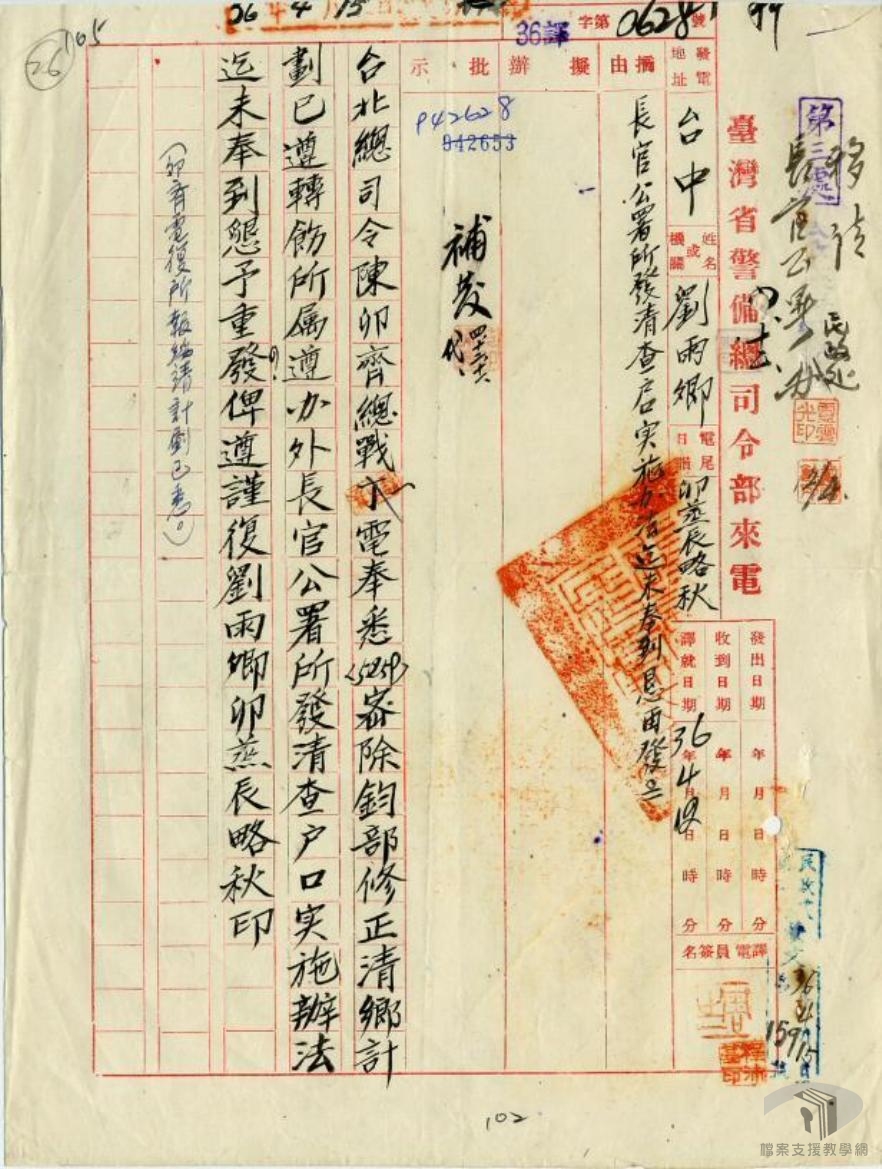 36譯
字第0628號
26 4 15
105
26
臺灣省警備總司令部來電
第三處
移請
長官公署
民政處
發電地址
台中
姓名或機關
劉雨卿
電尾日韻
卯蒸辰略秋
發出日期 年 月 日 時 分
收到日期 年 月 日 時 分
譯就日期 36年4月12日 時 分
譯電員簽名
摘由
長官公署所發清查戶口实施办法迄未奉到
擬辦
批示
P42628
942653
補發
台北總司令陳卯齊總戰
電奉悉(5259)密除鈞部修正清鄉計
劃已遵轉飭所属遵办外長官公署所發清查户口实施辦法
迄未奉到懇予重發俾遵謹復劉雨卿卯蒸辰略秋印
(卯齊電復所報綏靖計劃已悉。)
36
159
102
檔案支援教學網